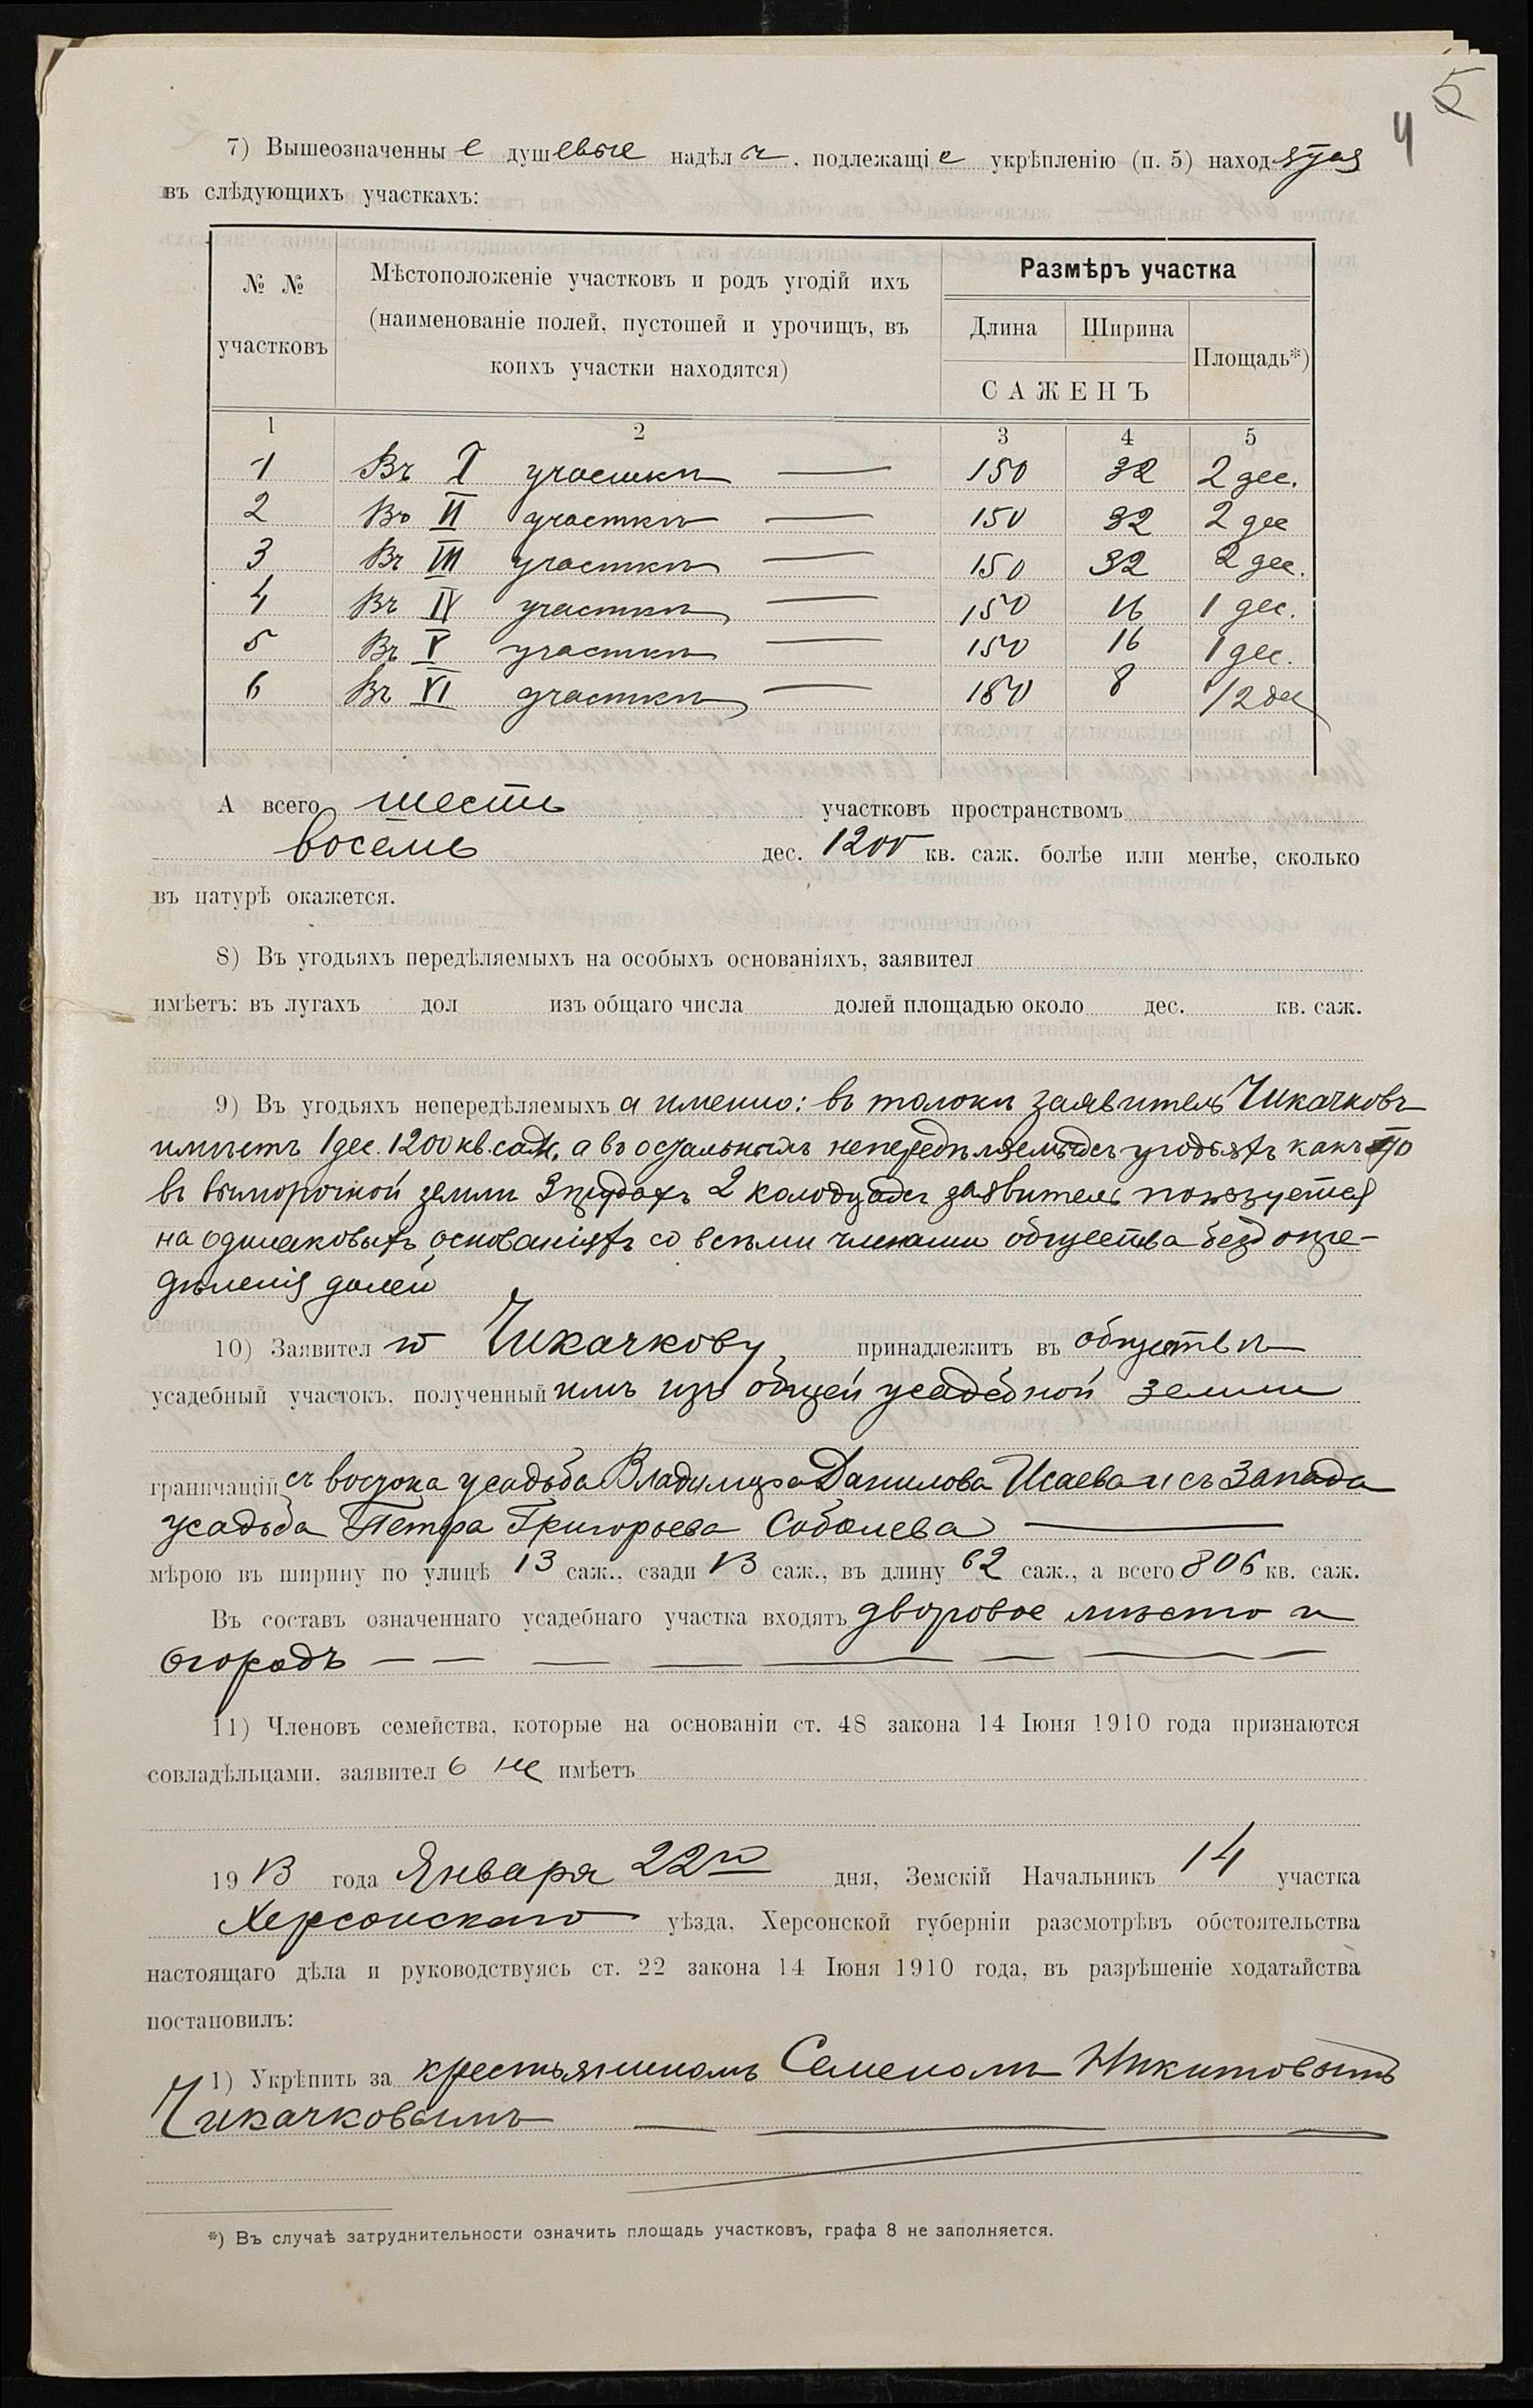 5
4
7) Вышеозначенные душевые надѣлы, подлежащіе укрѣпленію (п. 5) находятся
въ слѣдующихъ участкахъ:
№ № участковъ
Мѣстоположеніе участковъ и родъ угодій ихъ
(наименованіе полей, пустошей и урочищъ, въ
коихъ участки находятся)
Размѣръ участка
Длина Ширина Площадь*)
САЖЕНЪ
1 2 3 4 5
1 Въ I участкѣ — 150 32 2 дес.
2 Во II участкѣ — 150 32 2 дес
3 Въ III участкѣ — 150 32 2 дес.
4 Въ IV участкѣ — 150 16 1 дес.
5 Въ V участкѣ — 150 16 1 дес.
6 Въ VI участкѣ — 150 8 1/2 дес
А всего шесть участковъ пространствомъ
восемь дес. 1200 кв. саж. болѣе или менѣе, сколько
въ натурѣ окажется.
8) Въ угодьяхъ передѣляемыхъ на особыхъ основаніяхъ, заявител
имѣетъ: въ лугахъ дол изъ общаго числа долей площадью около дес. кв. саж.
9) Въ угодьяхъ непередѣляемыхъ а именно: въ толокѣ заявитель Чикачковъ
имѣетъ 1 дес. 1200 кв. саж, а въ остальныхъ непередѣляемыхъ угодьяхъ какъ то
въ выморочной землѣ 3 прудахъ 2 колодцахъ заявитель пользуется
на одинаковыхъ основаніяхъ со всѣми членами общества безъ опре-
дѣленія долей
10) Заявителю Чикачкову, принадлежитъ въ обществѣ
усадебный участокъ, полученный имъ изъ общей усадебной земли
граничащій съ востока усадьба Владимира Данилова Исаева и съ запада
усадьба Петра Григорьева Соболева —
мѣрою въ ширину по улицѣ 13 саж., сзади 13 саж., въ длину 62 саж., а всего 806 кв. саж.
Въ составъ означеннаго усадебнаго участка входятъ дворовое мѣсто и
огородъ — — — — — — — —
11) Членовъ семейства, которые на основаніи ст. 48 закона 14 Іюня 1910 года признаются
совладѣльцами, заявител ь не имѣетъ
1913 года Января 22го дня, Земскій Начальникъ 14 участка
Херсонскаго уѣзда, Херсонской губерніи разсмотрѣвъ обстоятельства
настоящаго дѣла и руководствуясь ст. 22 закона 14 Іюня 1910 года, въ разрѣшеніе ходатайства
постановилъ:
1) Укрѣпить за крестьяниномъ Семеномъ Никитовымъ
Чикачковымъ — —
*) Въ случаѣ затруднительности означить площадь участковъ, графа 8 не заполняется.